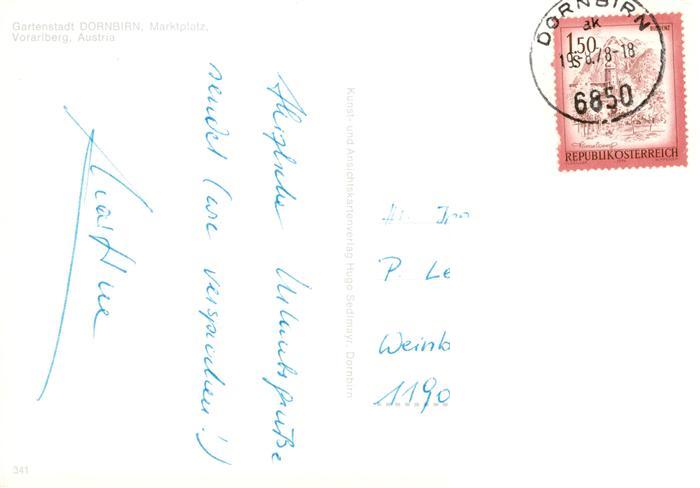 Gartenstadt DORNBIRN, Marktplatz,
Vorarlberg, Austria
Herzliche Urlaubsgrüße
sendet (wie versprochen!)
Kunst- und Ansichtskartenverlag Hugo Sedlmayr, Dornbirn
DORNBIRN
ak
19.-8.78-18
6850
1.50
BLUDENZ
REPUBLIK ÖSTERREICH
P. Le
Weinb
1190
341